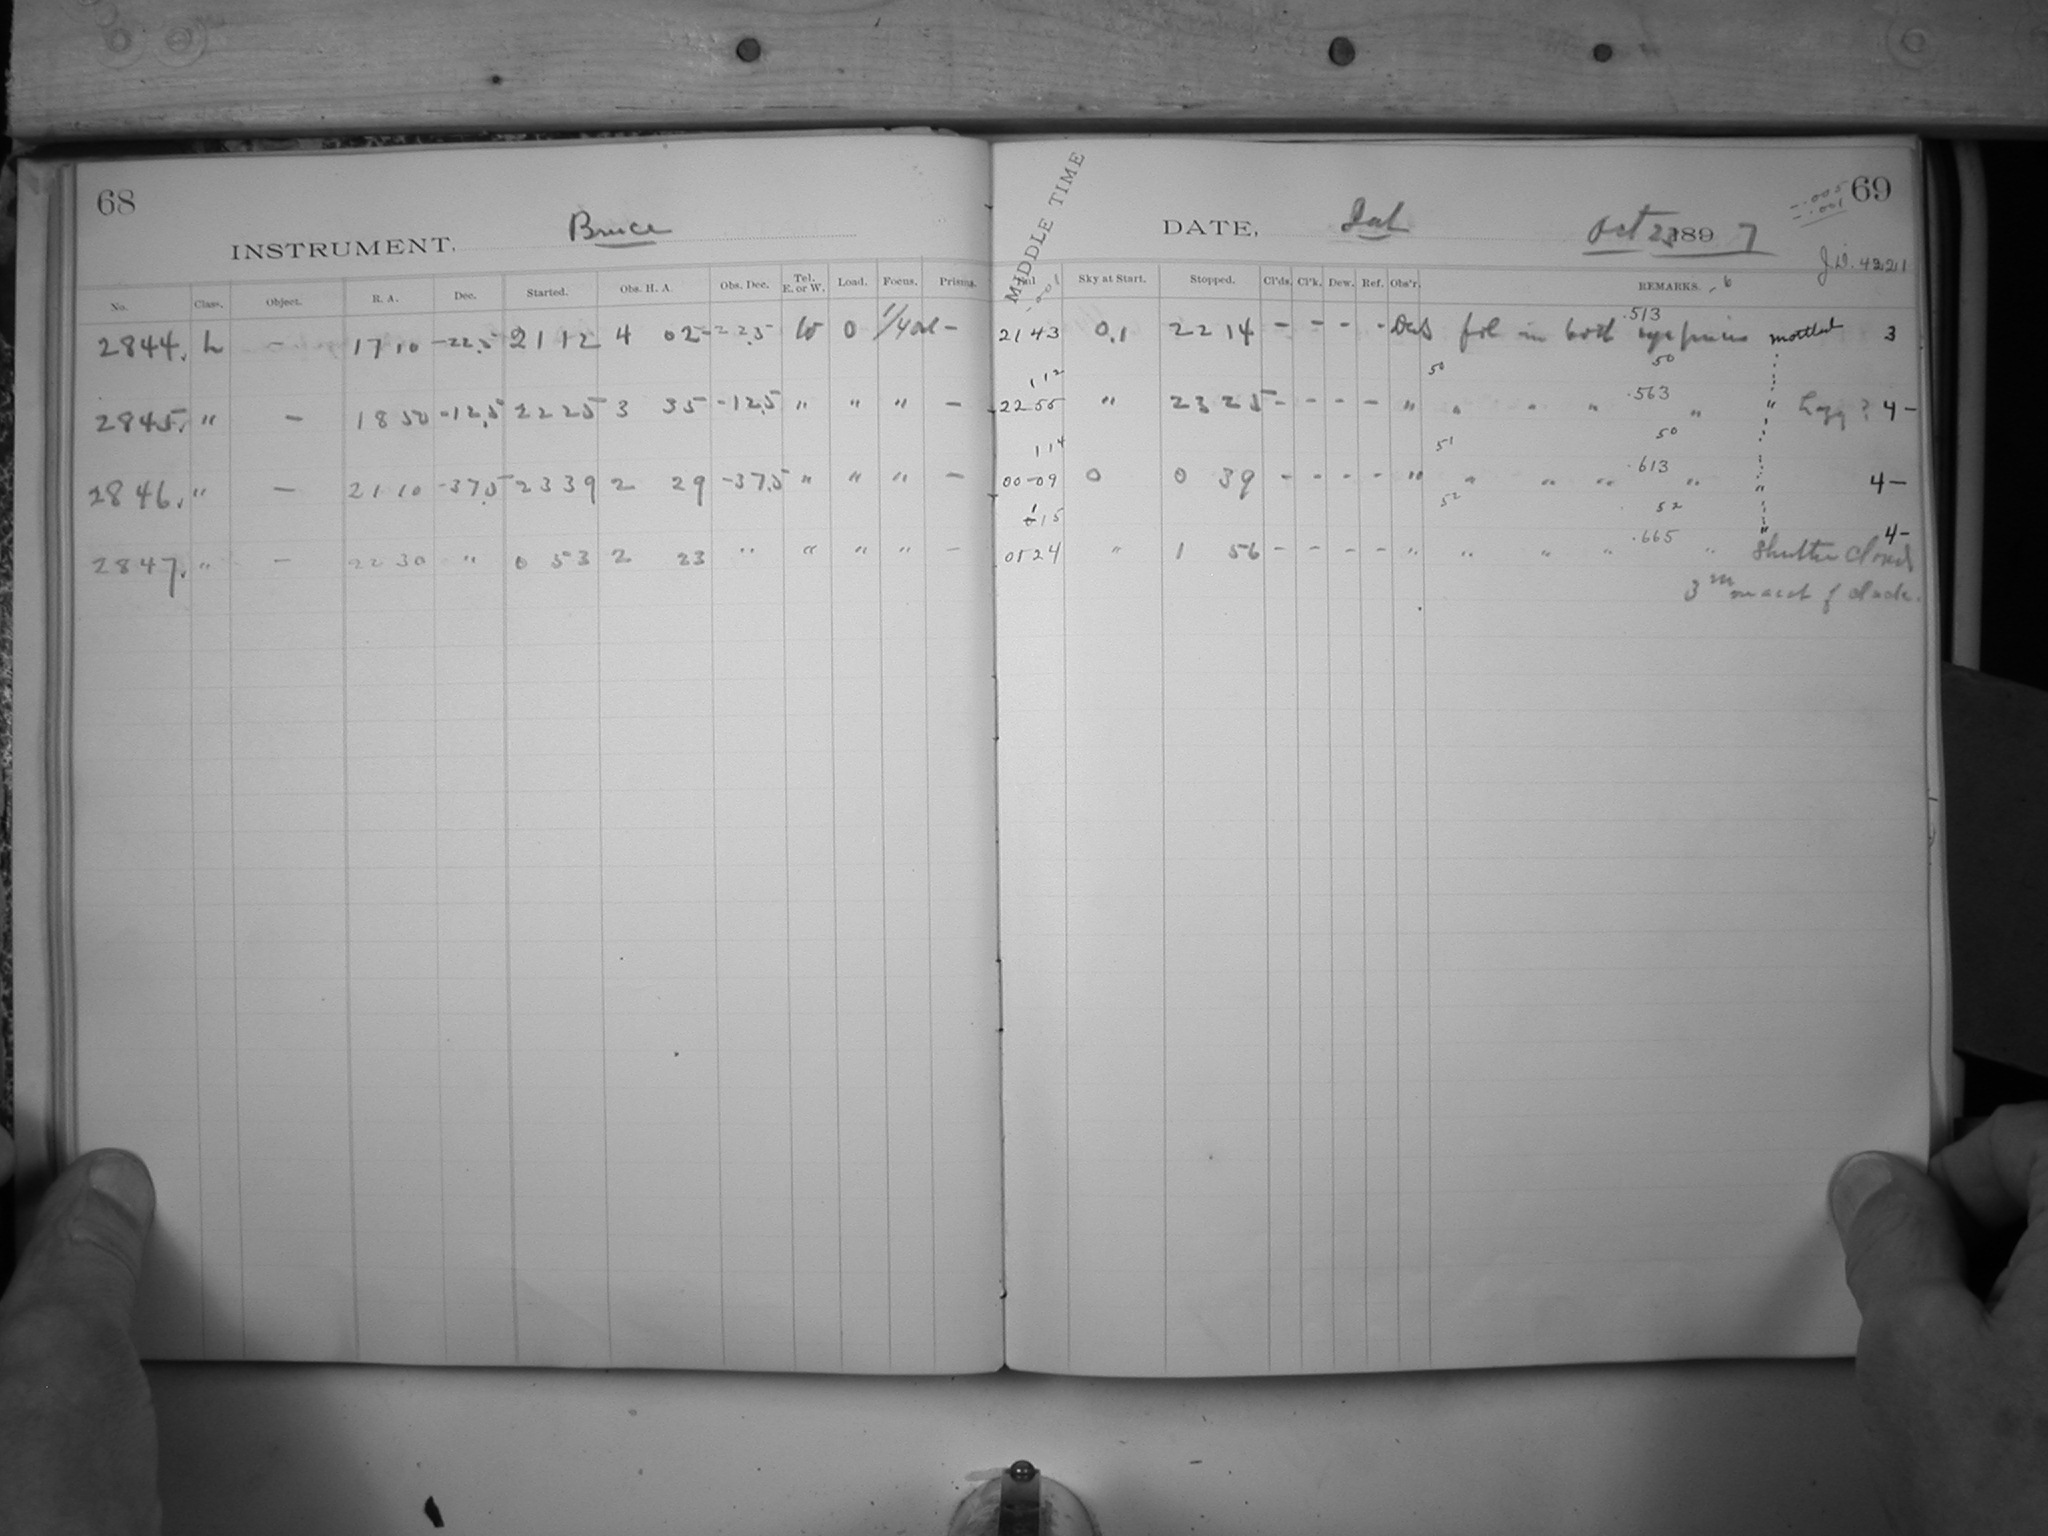 68
INSTRUMENT, Bruce
No. Class. Object. R. A. Dec. Started. Obs. H. A. Obs. Dec. Tel. E. or W. Load. Focus. Prisms.
2844. L - 17 10 -22.5 21 12 4 02 -22.5 W 0 1/4 -
2845. " - 18 50 -12.5 22 25 3 35 -12.5 " " " -
2846. " - 21 10 -37.5 23 39 2 29 -37.5 " " " -
2847. " - 22 30 " 0 53 2 23 " " " " -
MIDDLE TIME
-.005
-.001
69
DATE, Sat Oct 23 189 7
J.D. 4221
Sky at Start. Stopped. Cl'ds. Cl'k. Dew. Ref. Obs'r. REMARKS.
.513
21 43 0.1 22 14 - - - - fol in both eyepieces mottled 3
112 50 50
.563
22 55 " 23 25 - - - - " " " " " " hazy? 4-
114 51 50
.613
00-09 0 0 39 - - - - " " " " " " 4-
115 52 52
.665 4-
01 24 " 1 56 - - - - " " " " " " Shutter closed
3m of clock.